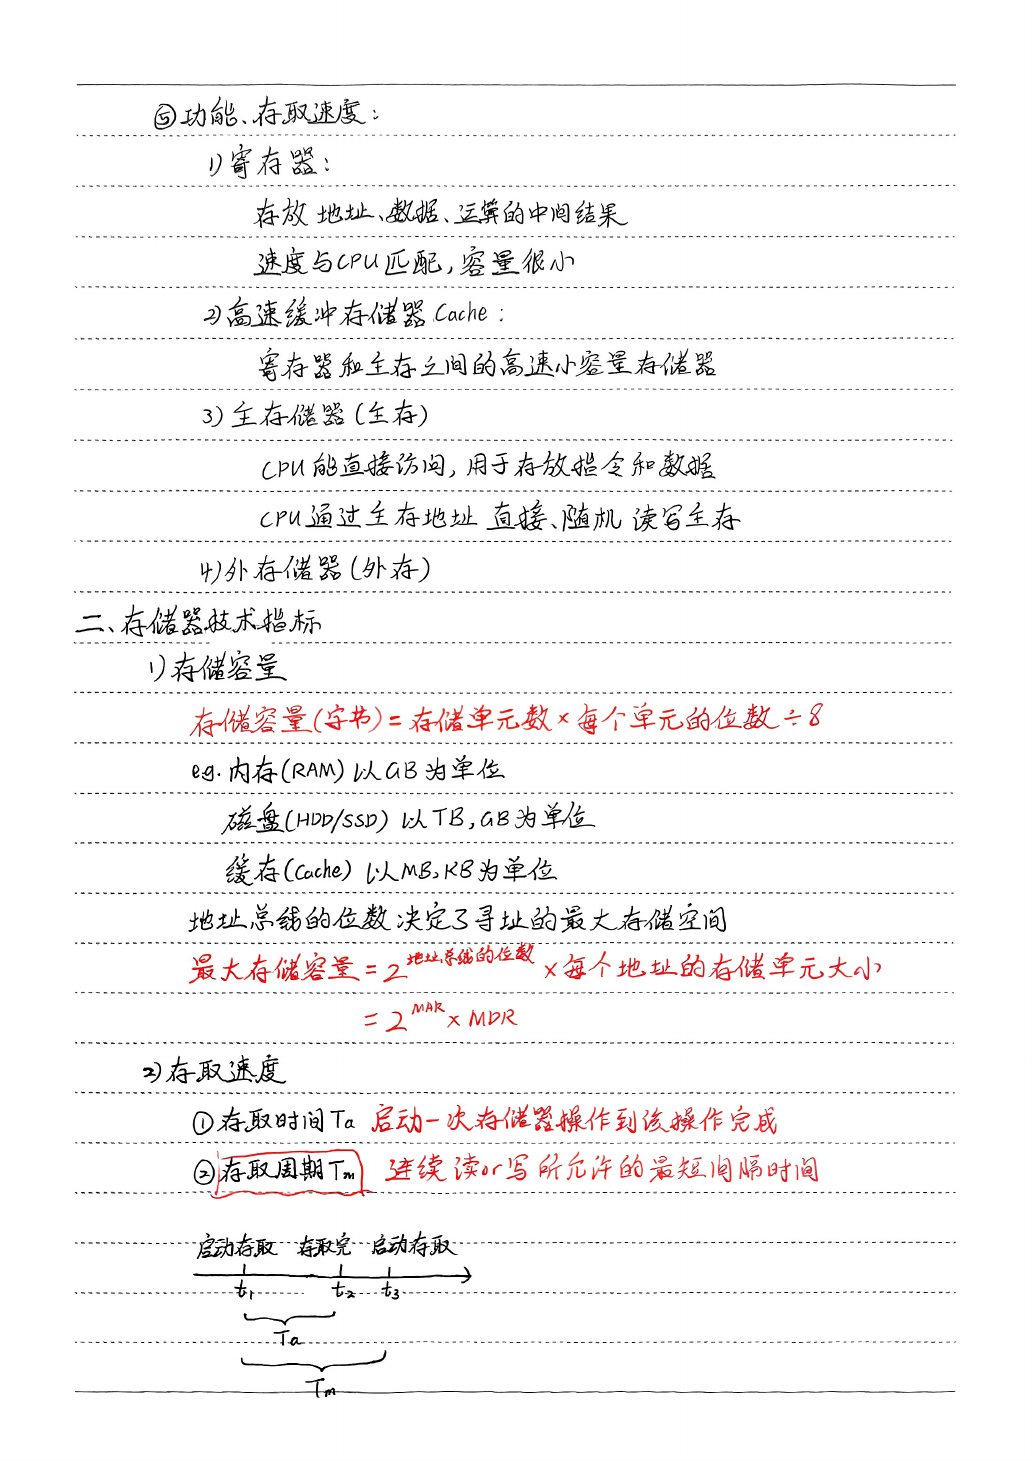 ⑤功能、存取速度：
1)寄存器：
存放 地址、数据、运算的中间结果
速度与CPU匹配，容量很小
2)高速缓冲存储器 Cache：
寄存器和主存之间的高速小容量存储器
3)主存储器(主存)
CPU能直接访问，用于存放指令和数据
CPU通过主存地址 直接、随机 读写主存
4)外存储器(外存)
二、存储器技术指标
1)存储容量
存储容量(字节)=存储单元数×每个单元的位数÷8
eg.内存(RAM)以GB为单位
磁盘(HDD/SSD)以TB,GB为单位
缓存(Cache)以MB,KB为单位
地址总线的位数决定了寻址的最大存储空间
最大存储容量=2^地址总线的位数 ×每个地址的存储单元大小
=2^MAR × MDR
2)存取速度
①存取时间Ta 启动一次存储器操作到该操作完成
②存取周期Tm 连续读or写所允许的最短间隔时间
启动存取 存取完 启动存取
t1 t2 t3
Ta
Tm